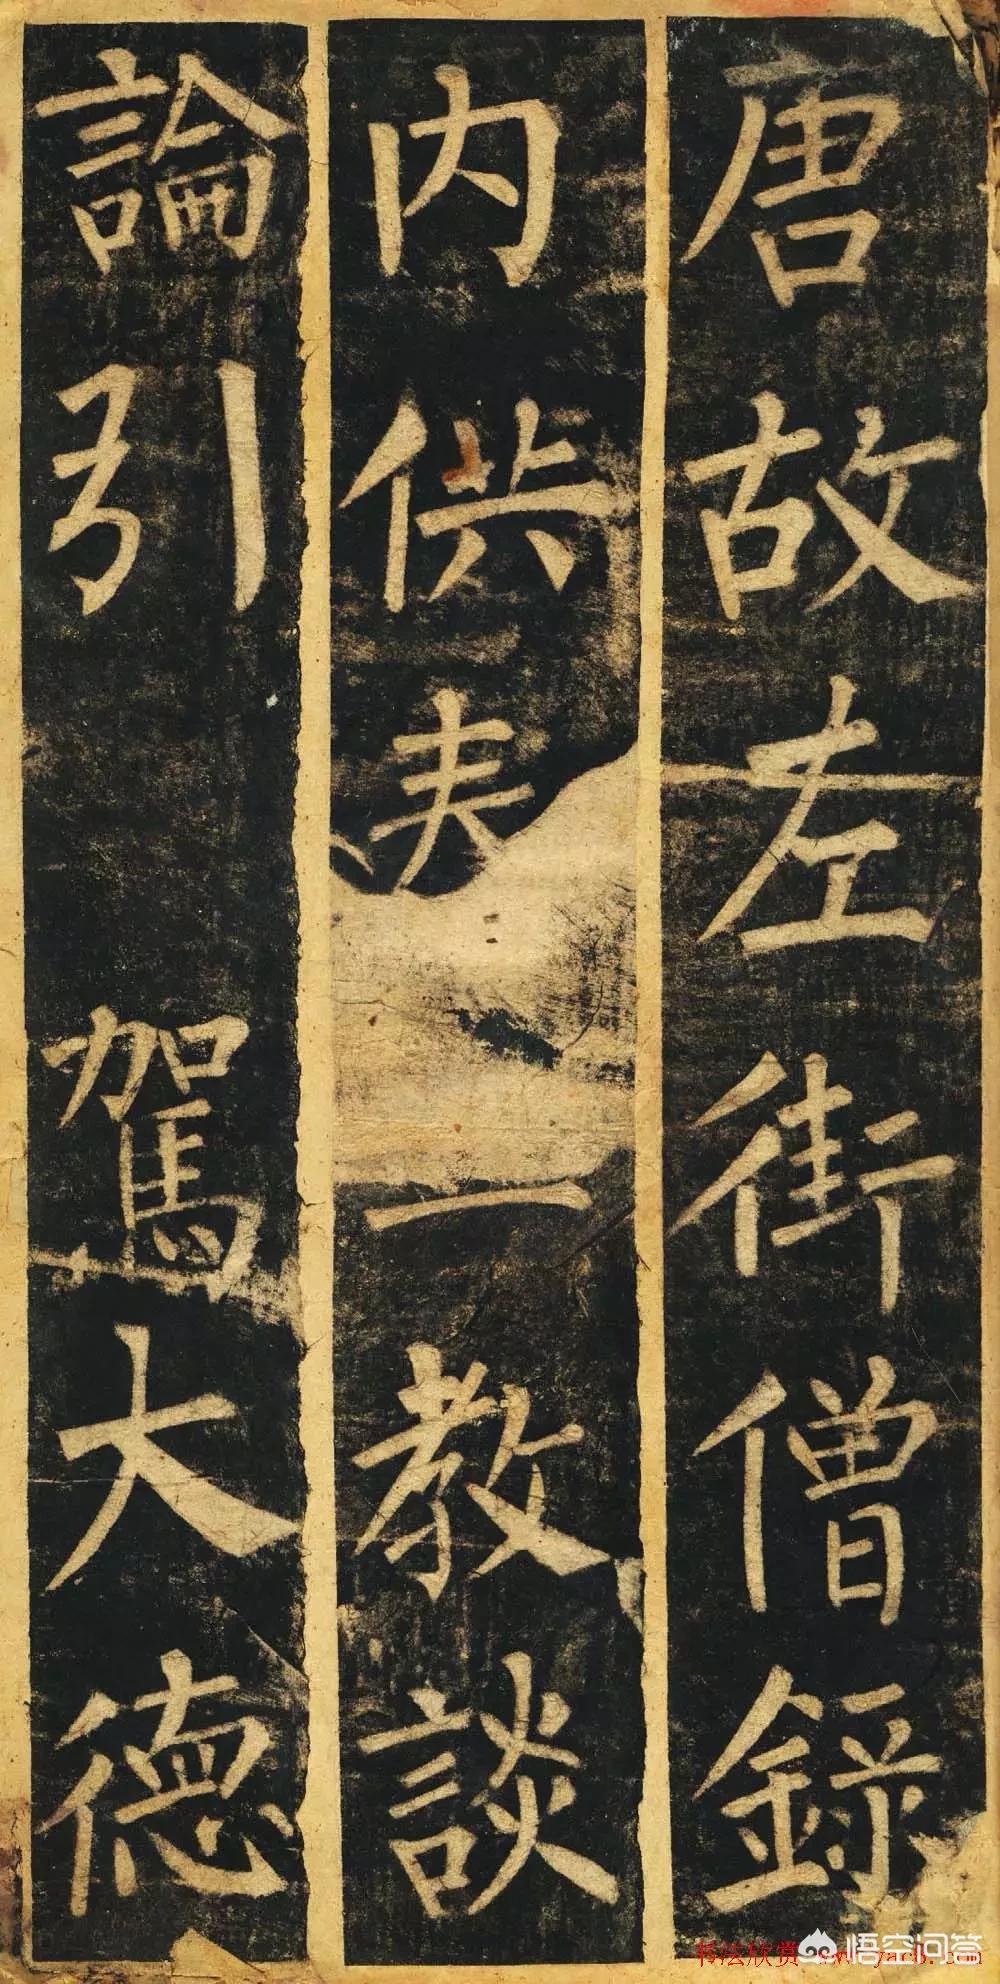 唐故左街僧錄
內供奉教談
論引駕大德
书法欣赏 www.yac8.com
悟空问答